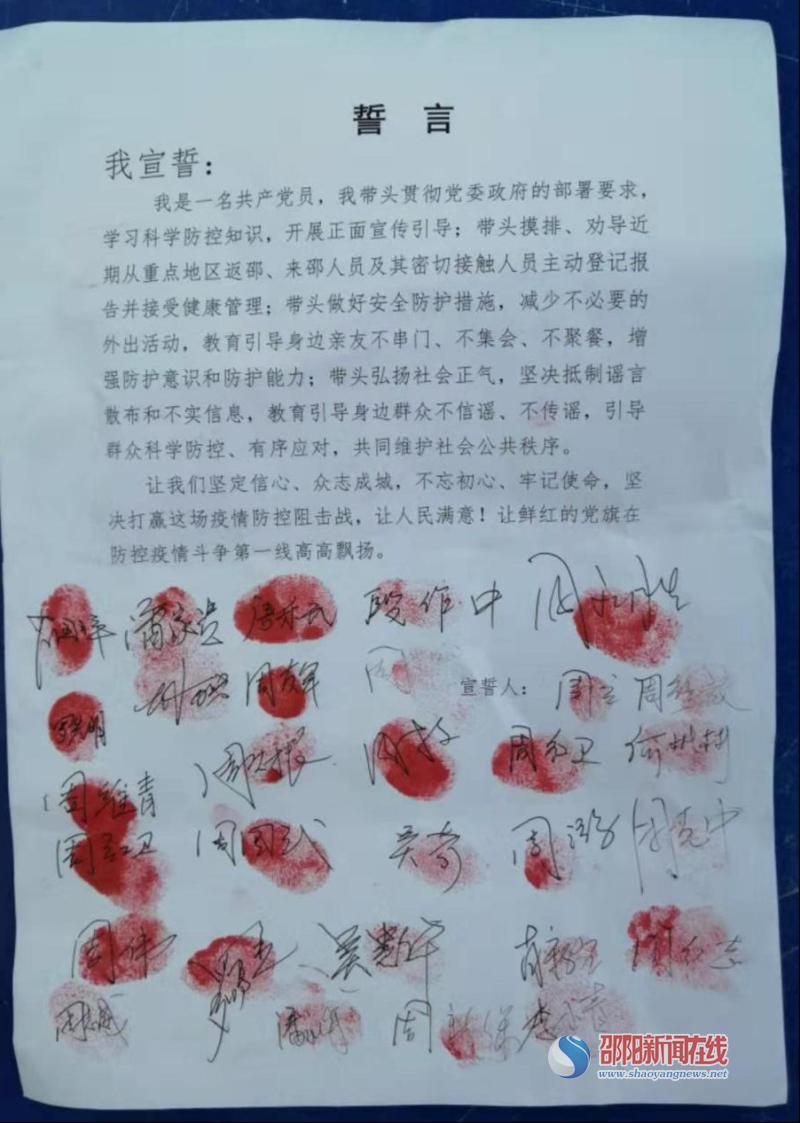 誓 言
我宣誓：
我是一名共产党员，我带头贯彻党委政府的部署要求，
学习科学防控知识，开展正面宣传引导；带头摸排、劝导近
期从重点地区返邵、来邵人员及其密切接触人员主动登记报
告并接受健康管理；带头做好安全防护措施，减少不必要的
外出活动，教育引导身边亲友不串门、不集会、不聚餐，增
强防护意识和防护能力；带头弘扬社会正气，坚决抵制谣言
散布和不实信息，教育引导身边群众不信谣、不传谣，引导
群众科学防控、有序应对，共同维护社会公共秩序。
让我们坚定信心、众志成城，不忘初心、牢记使命，坚
决打赢这场疫情防控阻击战，让人民满意！让鲜红的党旗在
防控疫情斗争第一线高高飘扬。
段作中
宣誓人：
周维青 周红卫
吴奇
周伟
邵阳新闻在线
www.shaoyangnews.net